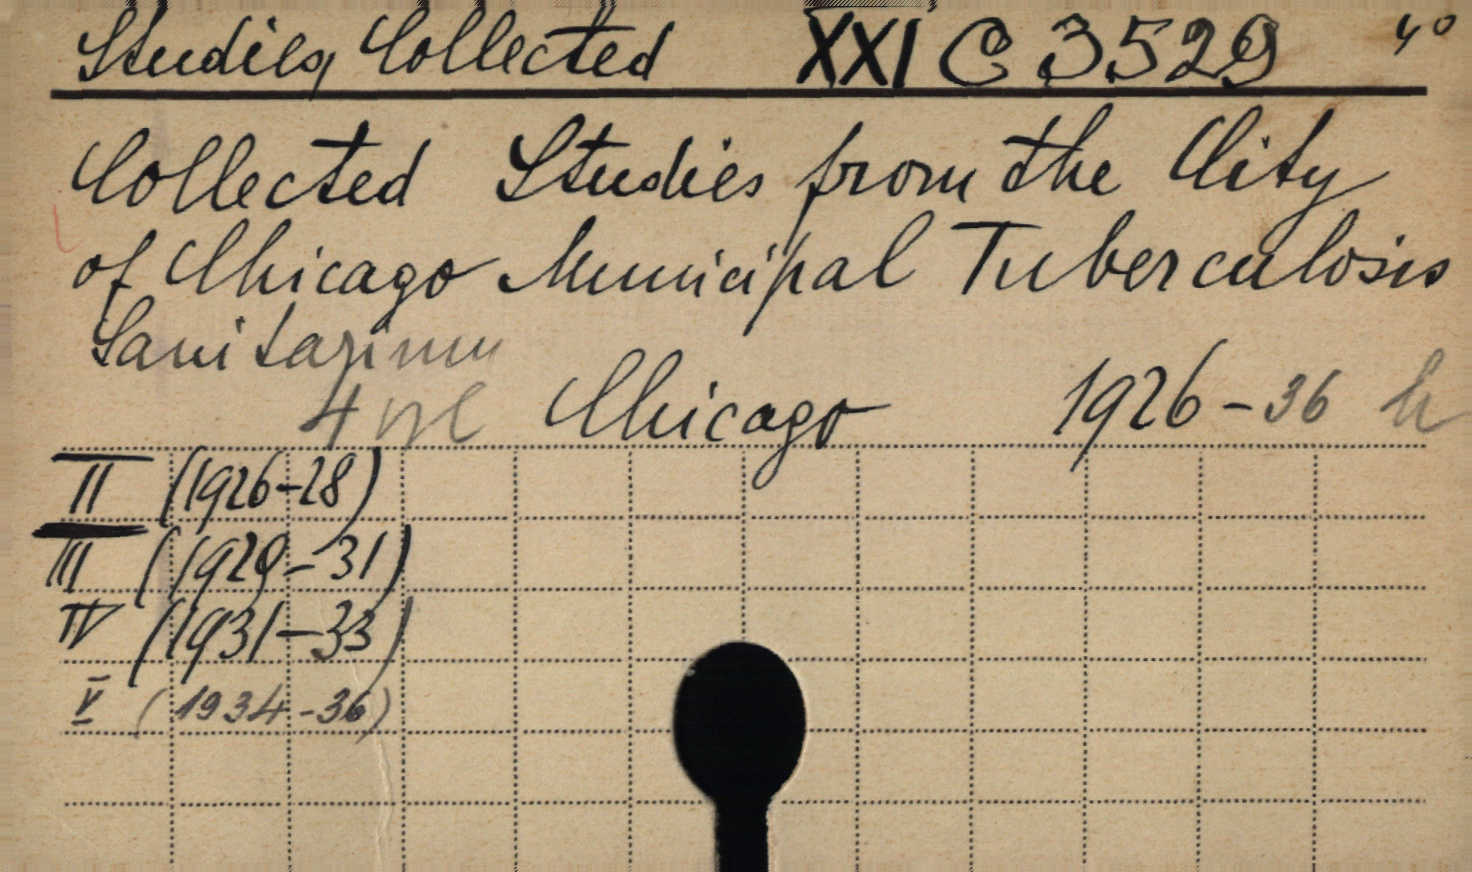 Studies, Collected XXI C 3529 4°
Collected Studies from the City
of Chicago Municipal Tuberculosis
Sanitarium
4 vol Chicago 1926-36
II (1926-28)
III (1929-31)
IV (1931-33)
V (1934-36)